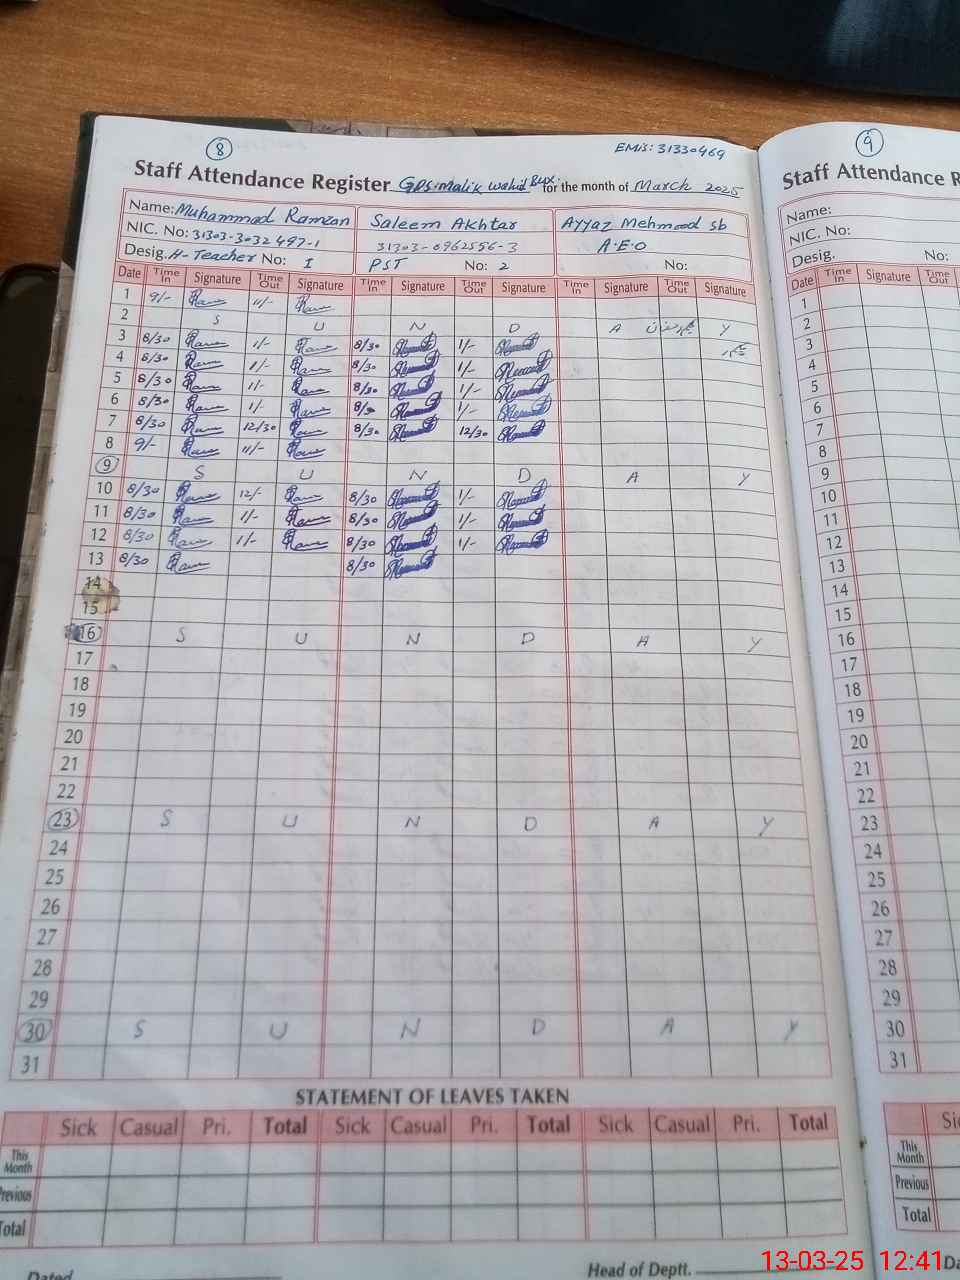 8
EMIS: 31330469
9
Staff Attendance Register GPS. Malik Wahid Bux. for the month of March 2025
Staff Attendance R
Name: Muhammad Ramzan Saleem Akhtar Ayyaz Mehmood sb
NIC. No: 31303-3032497-1 31303-0962556-3 A.E.O
Desig. H-Teacher No: I PST No: 2 No:
Name:
NIC. No:
Desig. No:
Date Time In Signature Time Out Signature Time In Signature Time Out Signature Time In Signature Time Out Signature
Date Time In Signature Time Out
1 9/- 11/-
2 S U N D A Y
3 8/30 1/- 8/30 1/-
4 8/30 1/- 8/30 1/-
5 8/30 1/- 8/30 1/-
6 8/30 1/- 8/30 1/-
7 8/30 12/30 8/30 12/30
8 9/- 11/-
9 S U N D A Y
10 8/30 12/- 8/30 1/-
11 8/30 1/- 8/30 1/-
12 8/30 1/- 8/30 1/-
13 8/30 8/30
14
15
16 S U N D A Y
17
18
19
20
21
22
23 S U N D A Y
24
25
26
27
28
29
30 S U N D A Y
31
1
2
3
4
5
6
7
8
9
10
11
12
13
14
15
16
17
18
19
20
21
22
23
24
25
26
27
28
29
30
31
STATEMENT OF LEAVES TAKEN
Sick Casual Pri. Total Sick Casual Pri. Total Sick Casual Pri. Total
This Month
Previous
Total
This Month
Previous
Total
Dated
Head of Deptt.
13-03-25 12:41